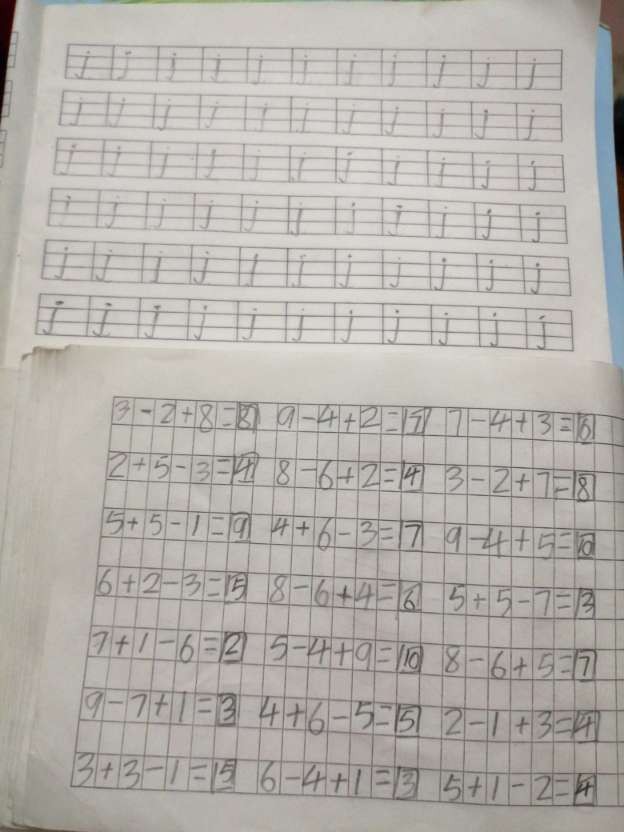 j j j j j j j j j j j
j j j j j j j j j j j
j j j j j j j j j j j
j j j j j j j j j j j
j j j j j j j j j j j
j j j j j j j j j j j
3-2+8=8 9-4+2=7 7-4+3=6
2+5-3=4 8-6+2=4 3-2+7=8
5+5-1=9 4+6-3=7 9-4+5=10
6+2-3=5 8-6+4=6 5+5-7=3
7+1-6=2 5-4+9=10 8-6+5=7
9-7+1=3 4+6-5=5 2-1+3=4
3+3-1=5 6-4+1=3 5+1-2=4